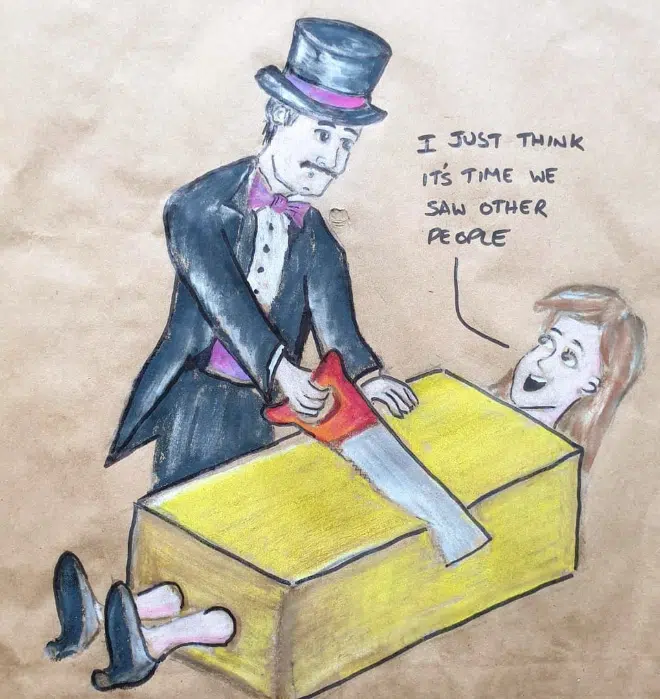 I JUST THINK
IT'S TIME WE
SAW OTHER
PEOPLE